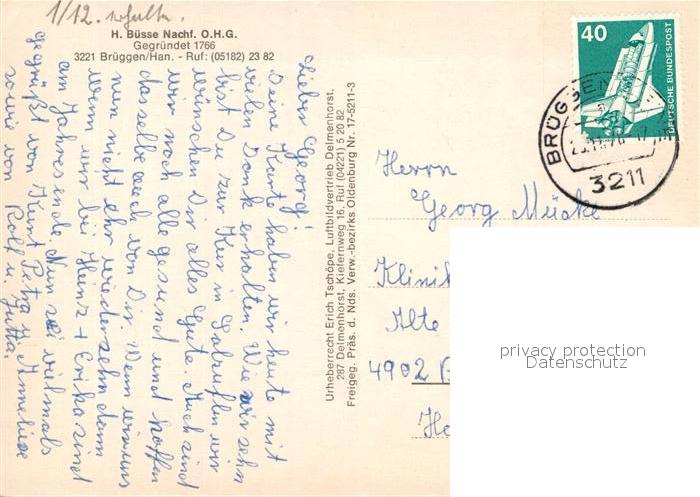 1/12. erhalten.
H. Büsse Nachf. O.H.G.
Gegründet 1766
3221 Brüggen/Han. - Ruf: (05182) 23 82
Lieber Georg!
Deine Karte haben wir heute mit
vielen Dank erhalten. Wie wir sehn
bist Du zur Kur in Salzuflen wir
wünschen Dir alles Gute. Auch sind
wir noch alle gesund und hoffen
dasselbe auch von Dir. Wenn wir uns
nun nicht ehr wiedersehn dann
wenn wir bei Heinz + Erika sind
am Jahresende. Nun sei vielmals
gegrüßt von Kurt Petra u. Anneliese
sowie von Rolf u. Jutta.
Urheberrecht Erich Tschöpe, Luftbildvertrieb Delmenhorst,
287 Delmenhorst, Kiefernweg 16, Ruf (04221) 5 20 82
Freigeg. Präs. d. Nds. Verw.-bezirks Oldenburg Nr. 17-5211-3
40
DEUTSCHE BUNDESPOST
BRÜGGEN
3211
Herrn
Georg Mücke
Klinik
Alte
4902 B
privacy protection
Datenschutz